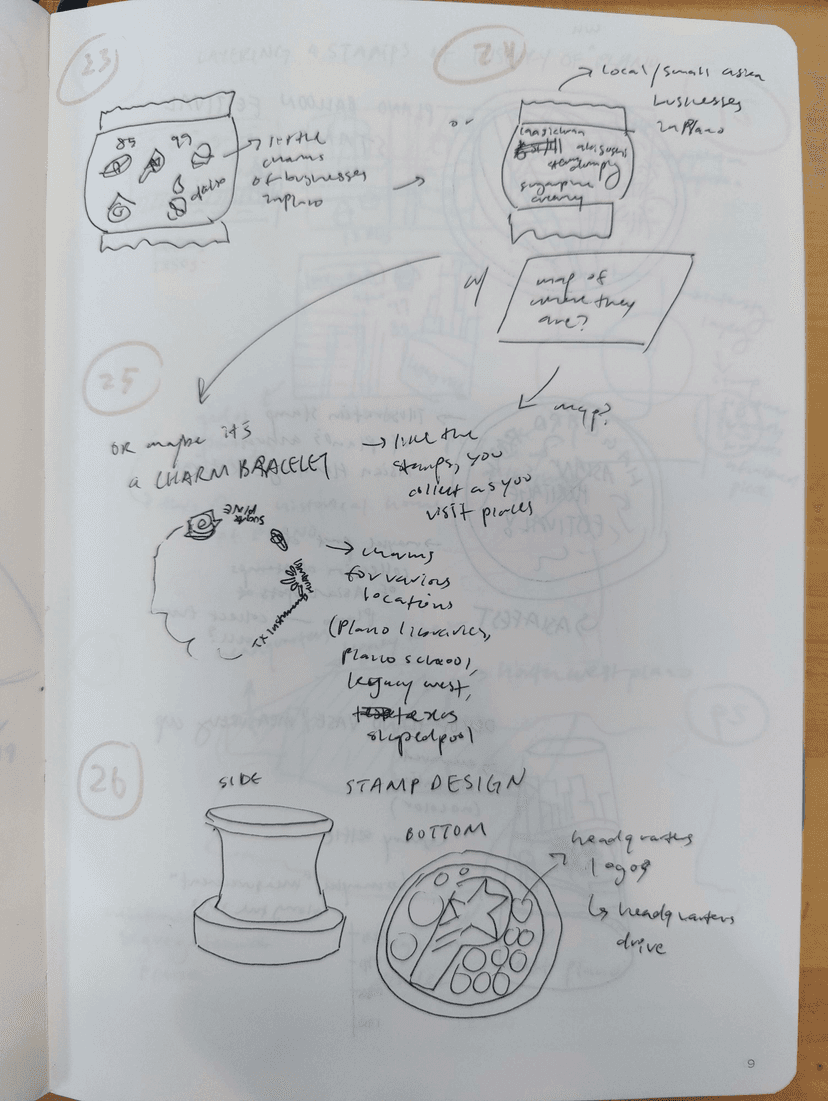 23
85
99
daiso
→ little
charms
of businesses
in plano
→
or
24
→ local/small asian
businesses
in plano
sugarpine
creamery
w/
map of
where they
are?
map?
25
OR maybe it's
a CHARM BRACELET
→ like the
stamps, you
collect as you
visit places
SUGAR PINE
TX Instruments
→ charms
for various
locations
(plano libraries,
plano school,
legacy west,
texas
shaped pool
26
SIDE
STAMP DESIGN
BOTTOM
headquarters
logos
↳ headquarters
drive
9